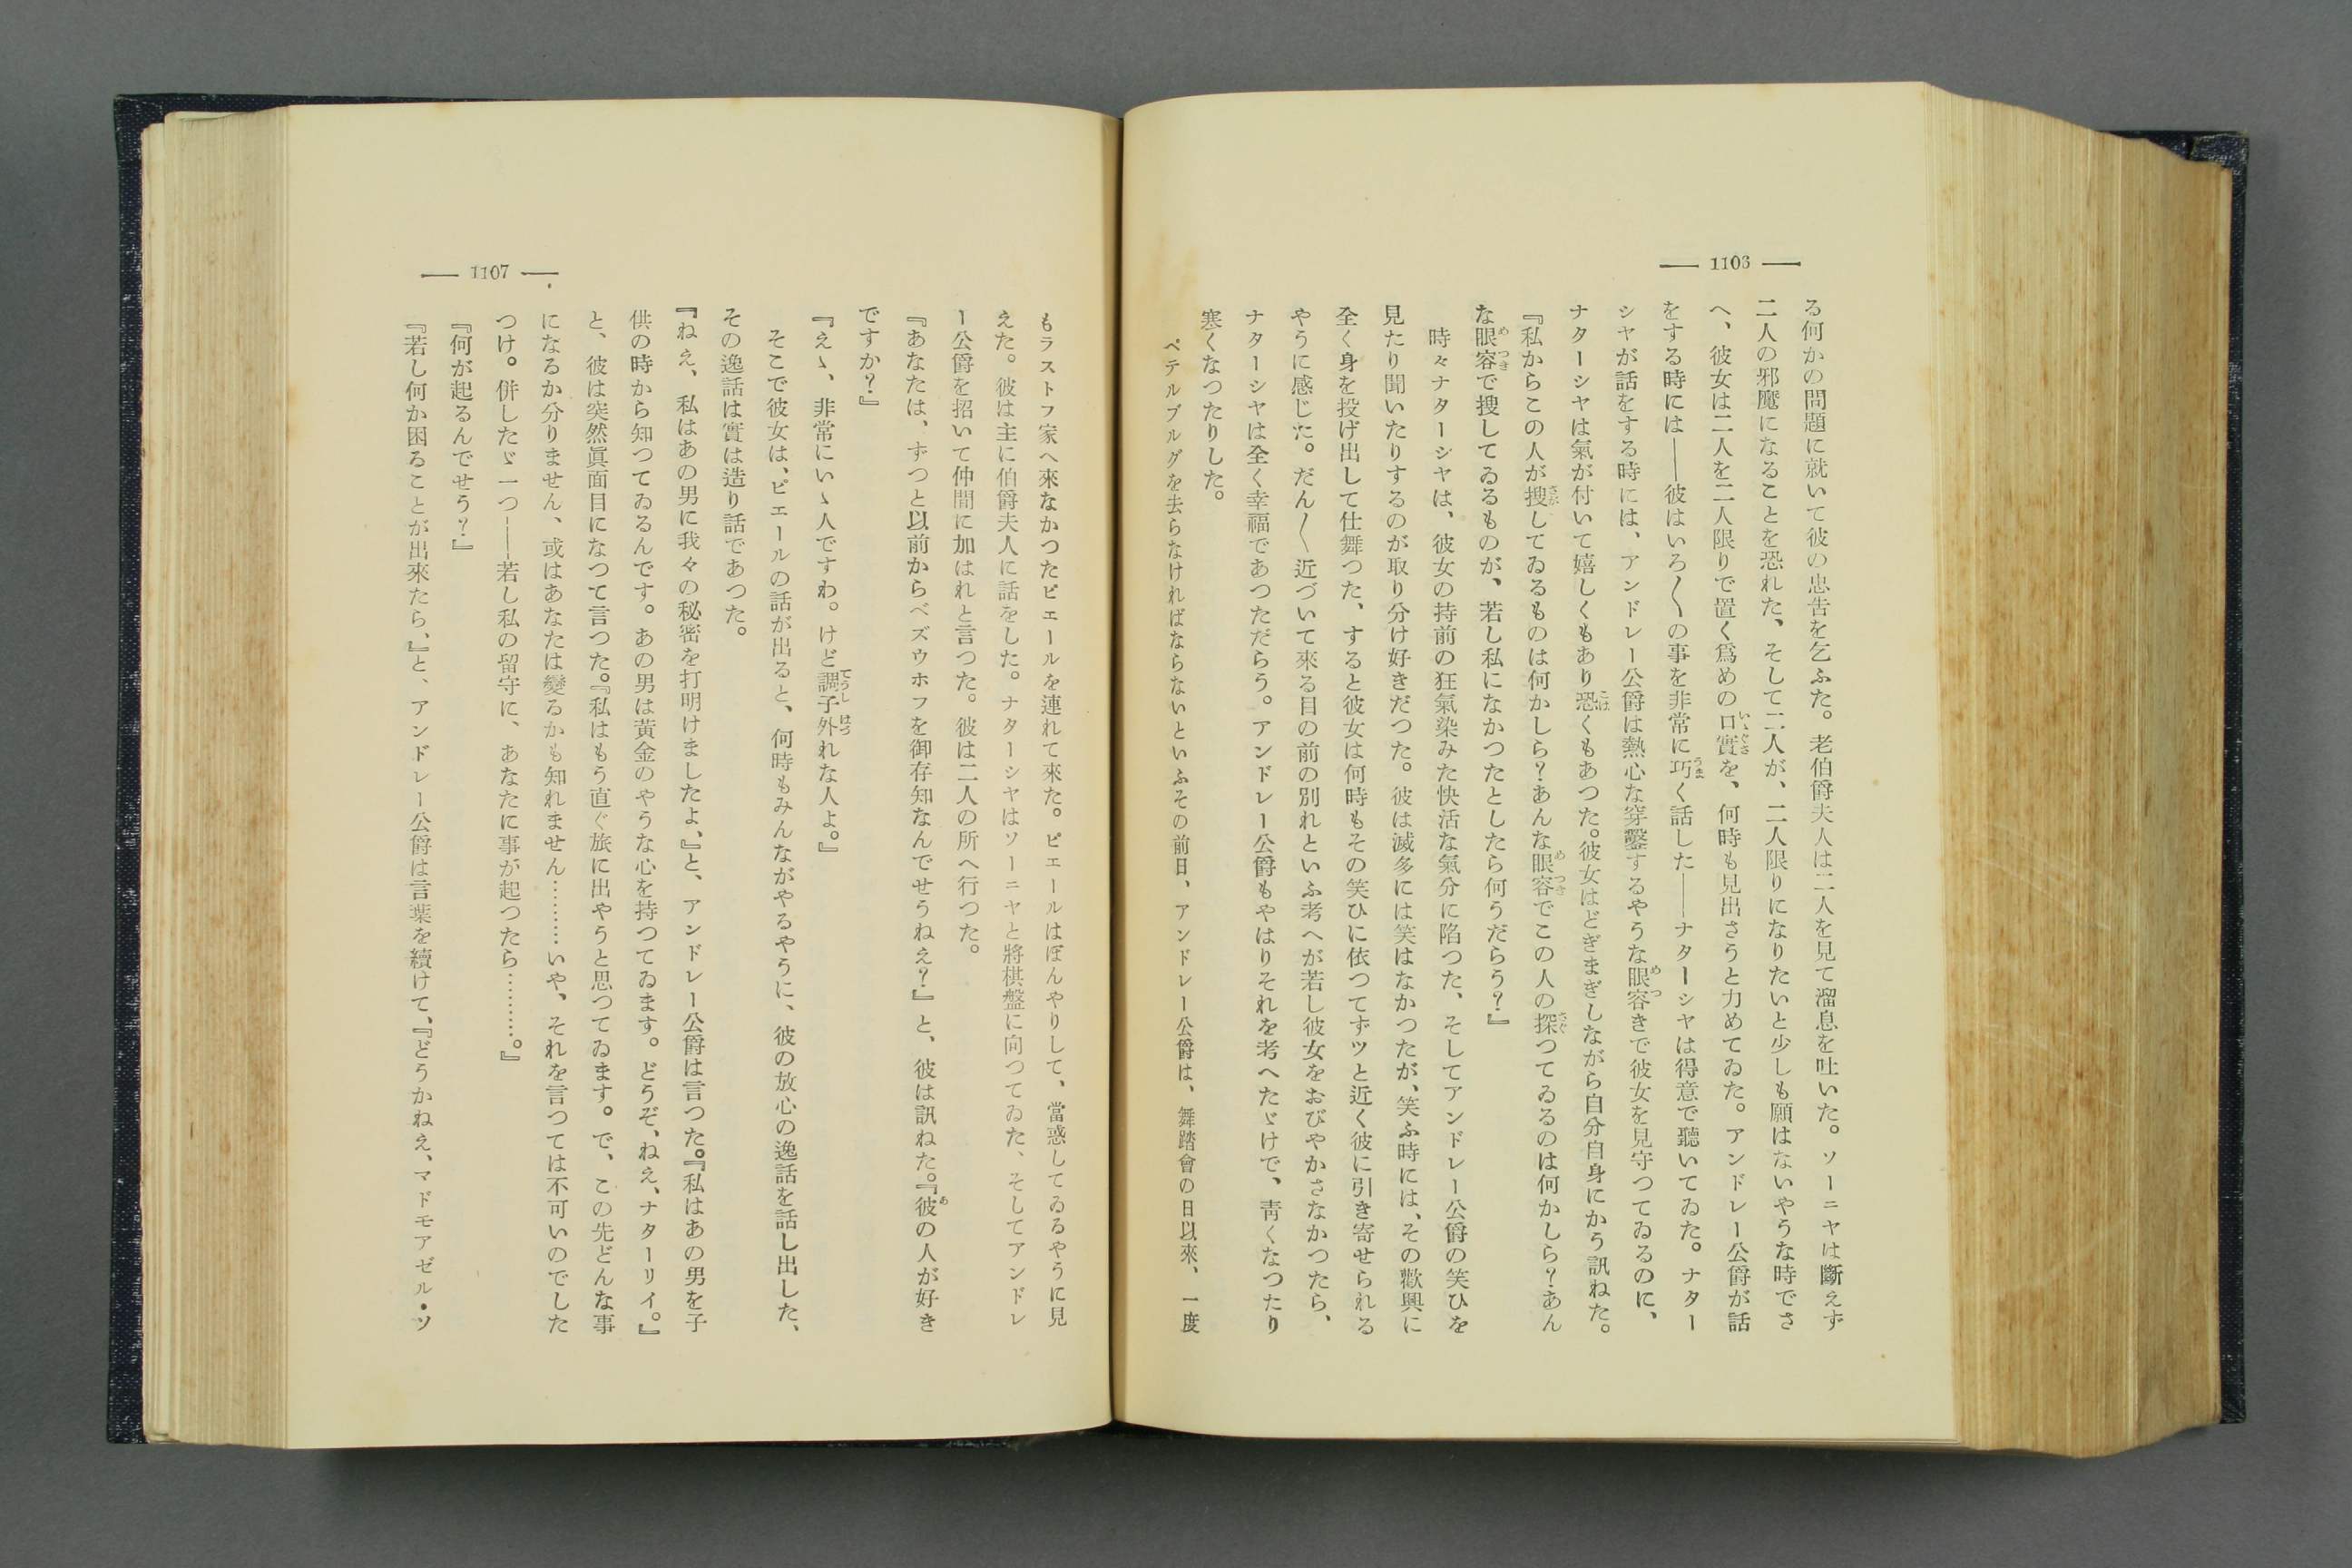 — 1106 —
る何かの問題に就いて彼の忠告を乞ふた。老伯爵夫人は二人を見て溜息を吐いた。ソーニヤは斷えず
二人の邪魔になることを恐れた、そして二人が、二人限りになりたいと少しも願はないやうな時でさ
へ、彼女は二人を二人限りで置く爲めの口實を、何時も見出さうと力めてゐた。アンドレー公爵が話
をする時には——彼はいろ〳〵の事を非常に巧く話した——ナターシヤは得意で聽いてゐた。ナター
シヤが話をする時には、アンドレー公爵は熱心な穿鑿するやうな眼容きで彼女を見守つてゐるのに、
ナターシヤは氣が付いて嬉しくもあり恐くもあつた。彼女はどぎまぎしながら自分自身にかう訊ねた。
『私からこの人が搜してゐるものは何かしら？あんな眼容でこの人の探つてゐるのは何かしら？あん
な眼容で搜してゐるものが、若し私になかつたとしたら何うだらう？』
時々ナターシヤは、彼女の持前の狂氣染みた快活な氣分に陷つた、そしてアンドレー公爵の笑ひを
見たり聞いたりするのが取り分け好きだつた。彼は滅多には笑はなかつたが、笑ふ時には、その歡興に
全く身を投げ出して仕舞つた、すると彼女は何時もその笑ひに依つてずツと近く彼に引き寄せられる
やうに感じた。だん〳〵近づいて來る目の前の別れといふ考へが若し彼女をおびやかさなかつたら、
ナターシヤは全く幸福であつただらう。アンドレー公爵もやはりそれを考へたゞけで、靑くなつたり
寒くなつたりした。
ペテルブルグを去らなければならないといふその前日、アンドレー公爵は、舞踏會の日以來、一度
— 1107 —
もラストフ家へ來なかつたピエールを連れて來た。ピエールはぼんやりして、當惑してゐるやうに見
えた。彼は主に伯爵夫人に話をした。ナターシヤはソーニヤと將棋盤に向つてゐた、そしてアンドレ
ー公爵を招いて仲間に加はれと言つた。彼は二人の所へ行つた。
『あなたは、ずつと以前からベズウホフを御存知なんでせうねえ？』と、彼は訊ねた。『彼の人が好き
ですか？』
『えゝ、非常にいゝ人ですわ。けど調子外れな人よ。』
そこで彼女は、ピエールの話が出ると、何時もみんながやるやうに、彼の放心の逸話を話し出した、
その逸話は實は造り話であつた。
『ねえ、私はあの男に我々の秘密を打明けましたよ、』と、アンドレー公爵は言つた。『私はあの男を子
供の時から知つてゐるんです。あの男は黃金のやうな心を持つてゐます。どうぞ、ねえ、ナターリイ。』
と、彼は突然眞面目になつて言つた。『私はもう直ぐ旅に出やうと思つてゐます。で、この先どんな事
になるか分りません、或はあなたは變るかも知れません………いや、それを言つては不可いのでした
つけ。併したゞ一つ——若し私の留守に、あなたに事が起つたら………。』
『何が起るんでせう？』
『若し何か困ることが出來たら、』と、アンドレー公爵は言葉を續けて、『どうかねえ、マドモアゼル・ソ